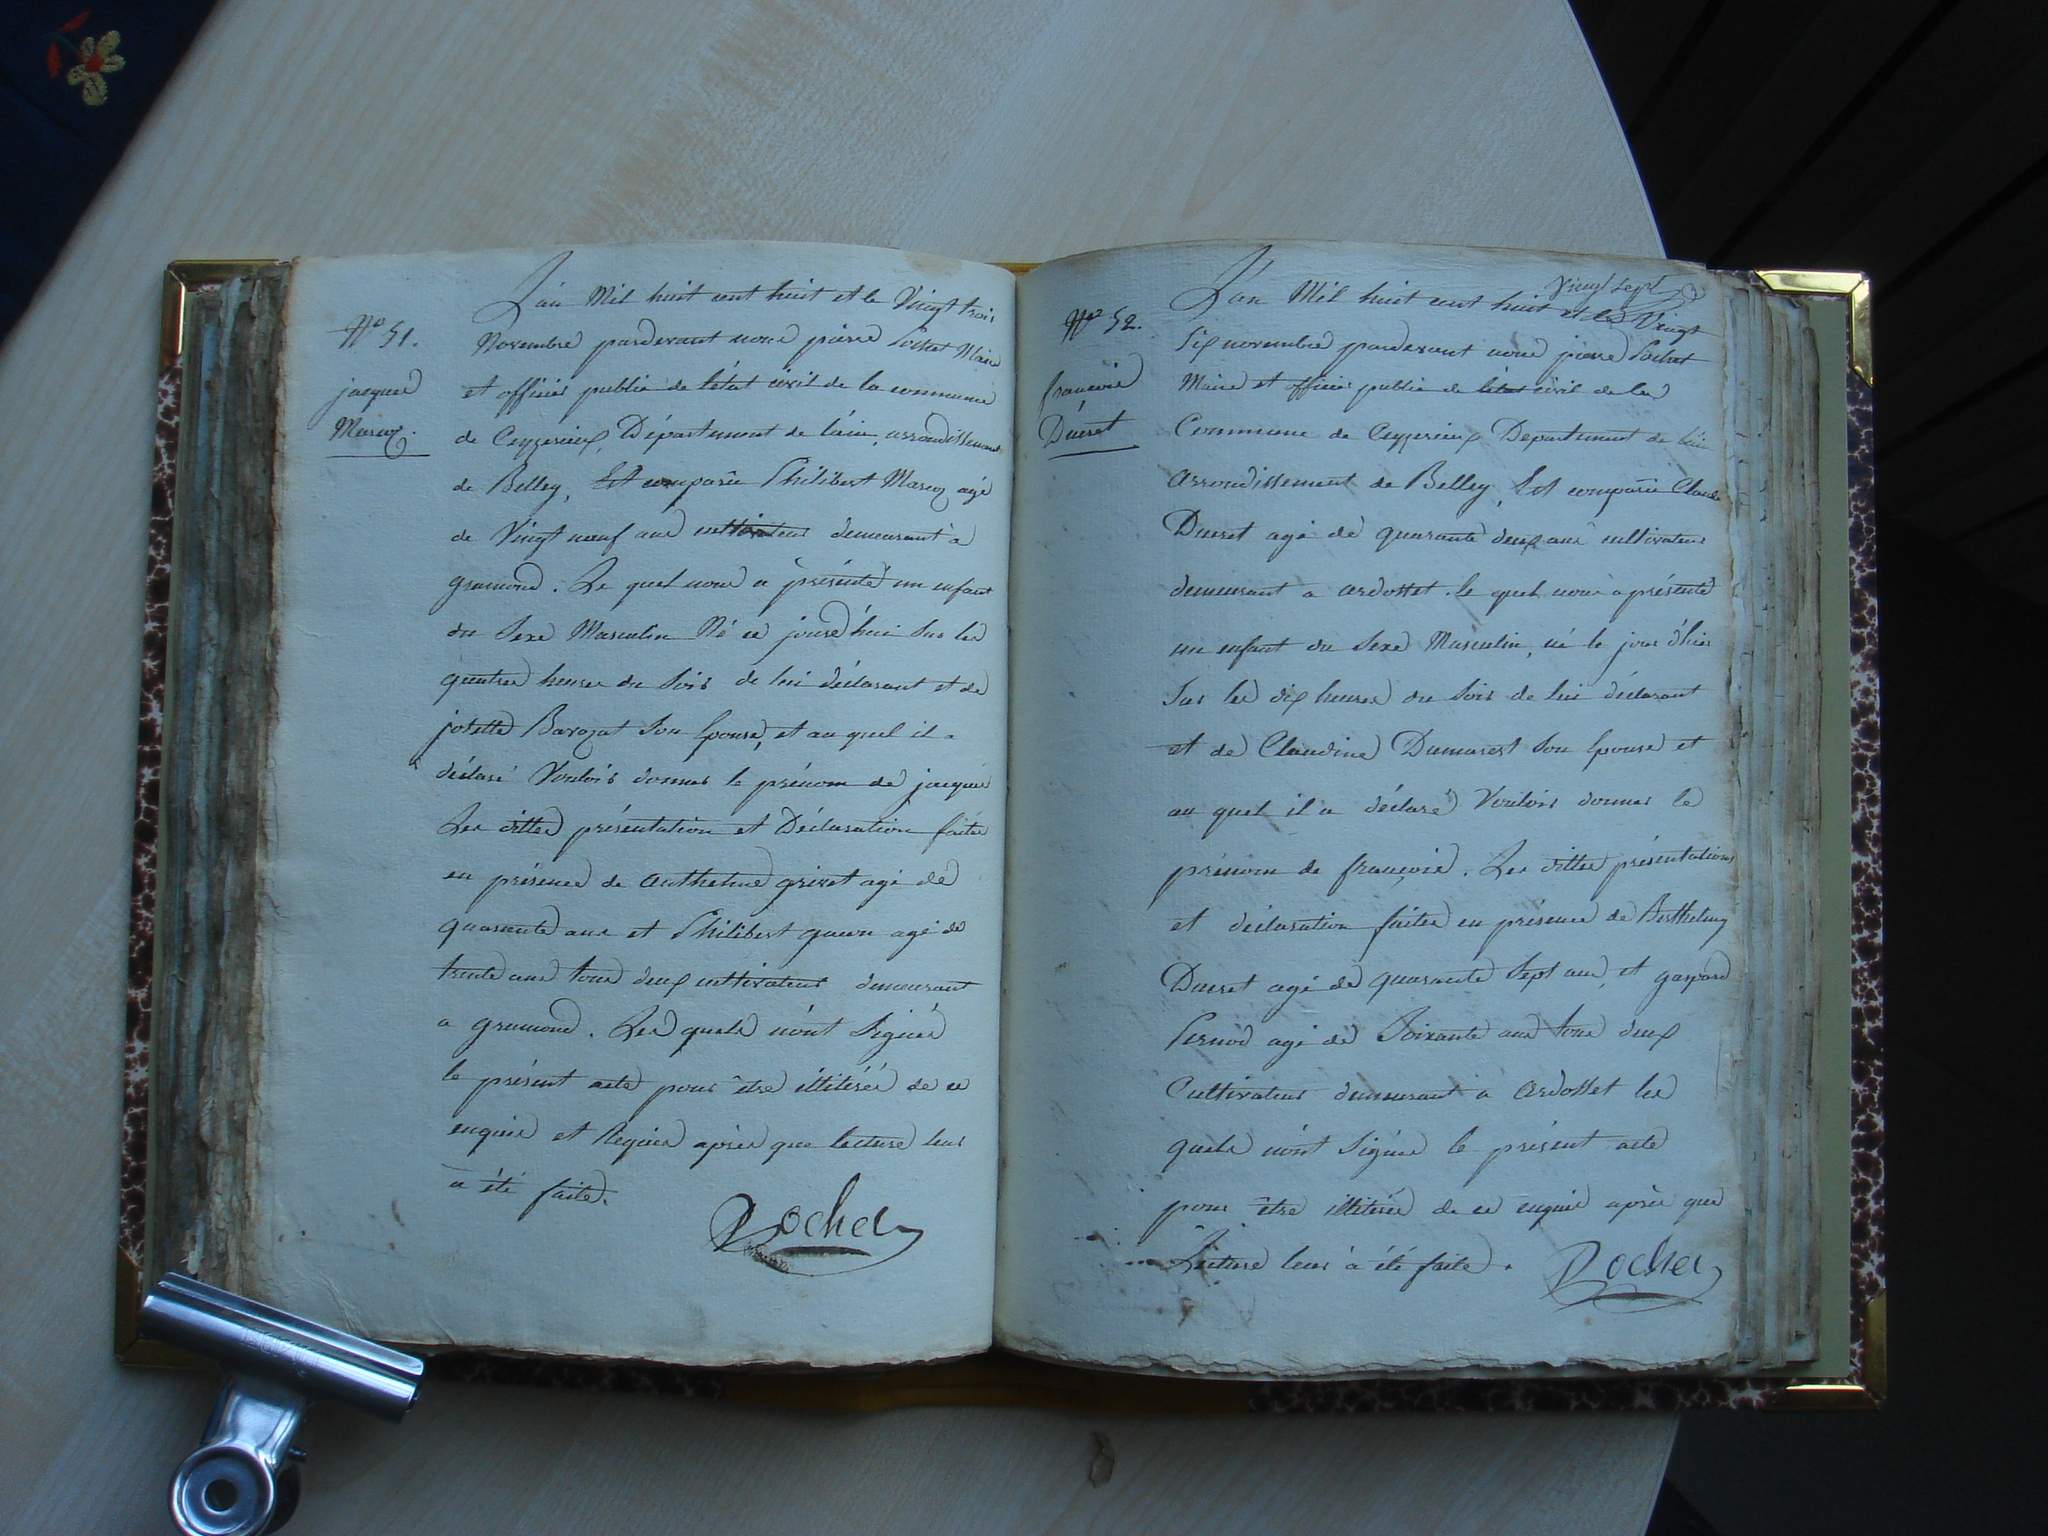 N° 51.
jacques
Marcoz.
L'an Mil huit cent huit et le Vingt trois
Novembre pardevant nous pierre Pochet Maire
et officier public de l'état civil de la commune
de Ceyzerieux, Département de l'ain, arrondissement
de Belley, Est comparû Philibert Marcoz agé
de Vingt neuf ans cultivateur demeurant à
gramond. Le quel nous a présenté un enfant
du Sexe Masculin Né ce jourd'hui Sur les
quatres heures du Soir de lui déclarant et de
josette Barozat Son Epouse, et au quel il a
déclaré Vouloir donner le prénom de jacques
Les dittes présentation et Déclaration faites
en présence de anthelme grivet agé de
quarante ans et Philibert agé de
trente ans tous deux cultivateurs demeurant
a gramond. Les quels n'ont Signés
le présent acte pour être illitérés de ce
enquis et Requis après que lecture leur
a été faite.
Pochet
N° 52.
françois
Ducret
Vingt Sept
L'an Mil huit cent huit et le Vingt
Six novembre pardevant nous pierre Pochet
Maire et officier public de létat civil de la
Commune de Ceyzerieux Département de l'ain
arrondissement de Belley, Est comparû Claude
Ducret agé de quarante deux ans cultivateur
demeurant a ardosset. le quel nous a présenté
un enfant du Sexe Masculin, né le jour d'hier
Sur les dix heures du Soir de lui déclarant
et de Claudine Dumarest Son Epouse et
au quel il a déclaré Vouloir donner le
prénom de françois. Les dittes présentations
et déclaration faites en présence de Berthelemy
Ducret agé de quarante Sept ans, et gaspard
Pernod agé de Soixante ans tous deux
Cultivateurs demeurant à ardosset les
quels n'ont Signés le présent acte
pour être illitérés de ce enquis après que
Lecture leur à été faite.
Pochet